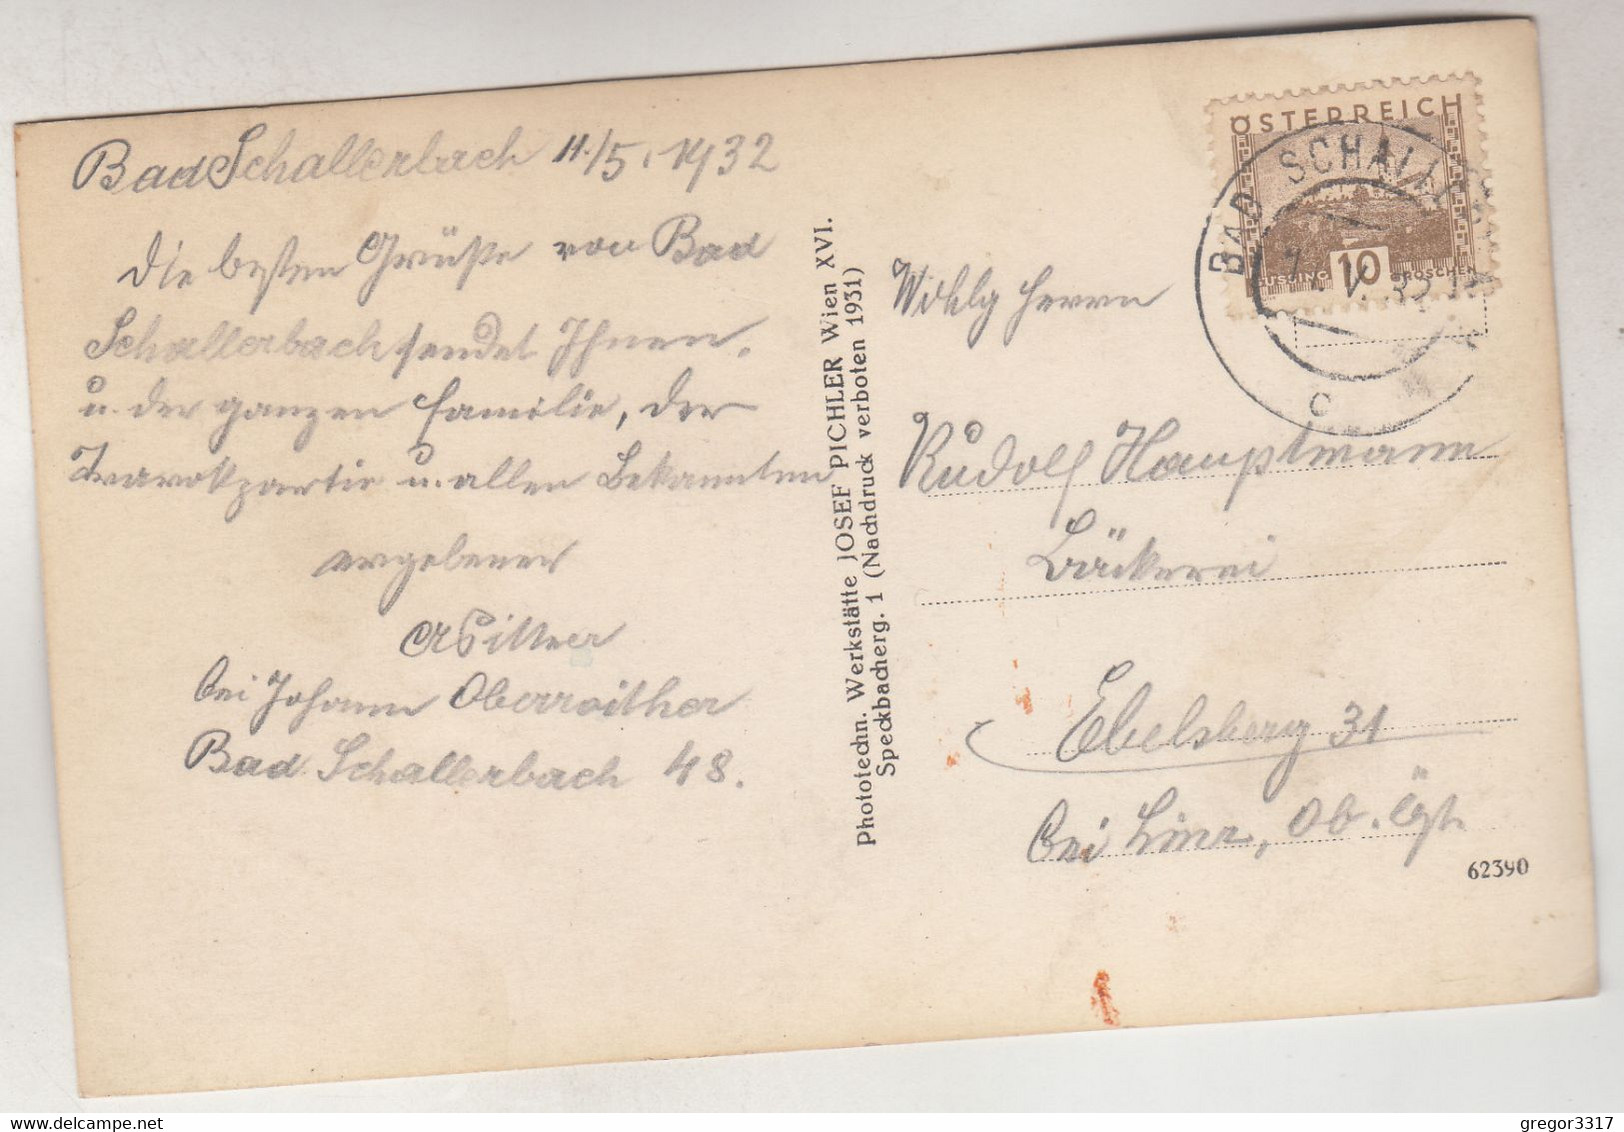 Bad Schallerbach 11./5. 1932
Die besten Grüße von Bad
Schallerbach sendet Ihnen,
u. der ganzen Familie, der
Tarokpartie u. allen Bekannten
ergebener
Pittner
bei Johann Oberroither
Bad Schallerbach 48.
Phototechn. Werkstätte JOSEF PICHLER Wien XVI.
Speckbacherg. 1 (Nachdruck verboten 1931)
ÖSTERREICH
GÜSSING 10 GROSCHEN
BAD SCHALLER
V. 32
Herrn
Rudolf Hauptmann
Bäckerei
Ebelsberg 31
bei Linz, Ob. Öst.
62390
gregor3317